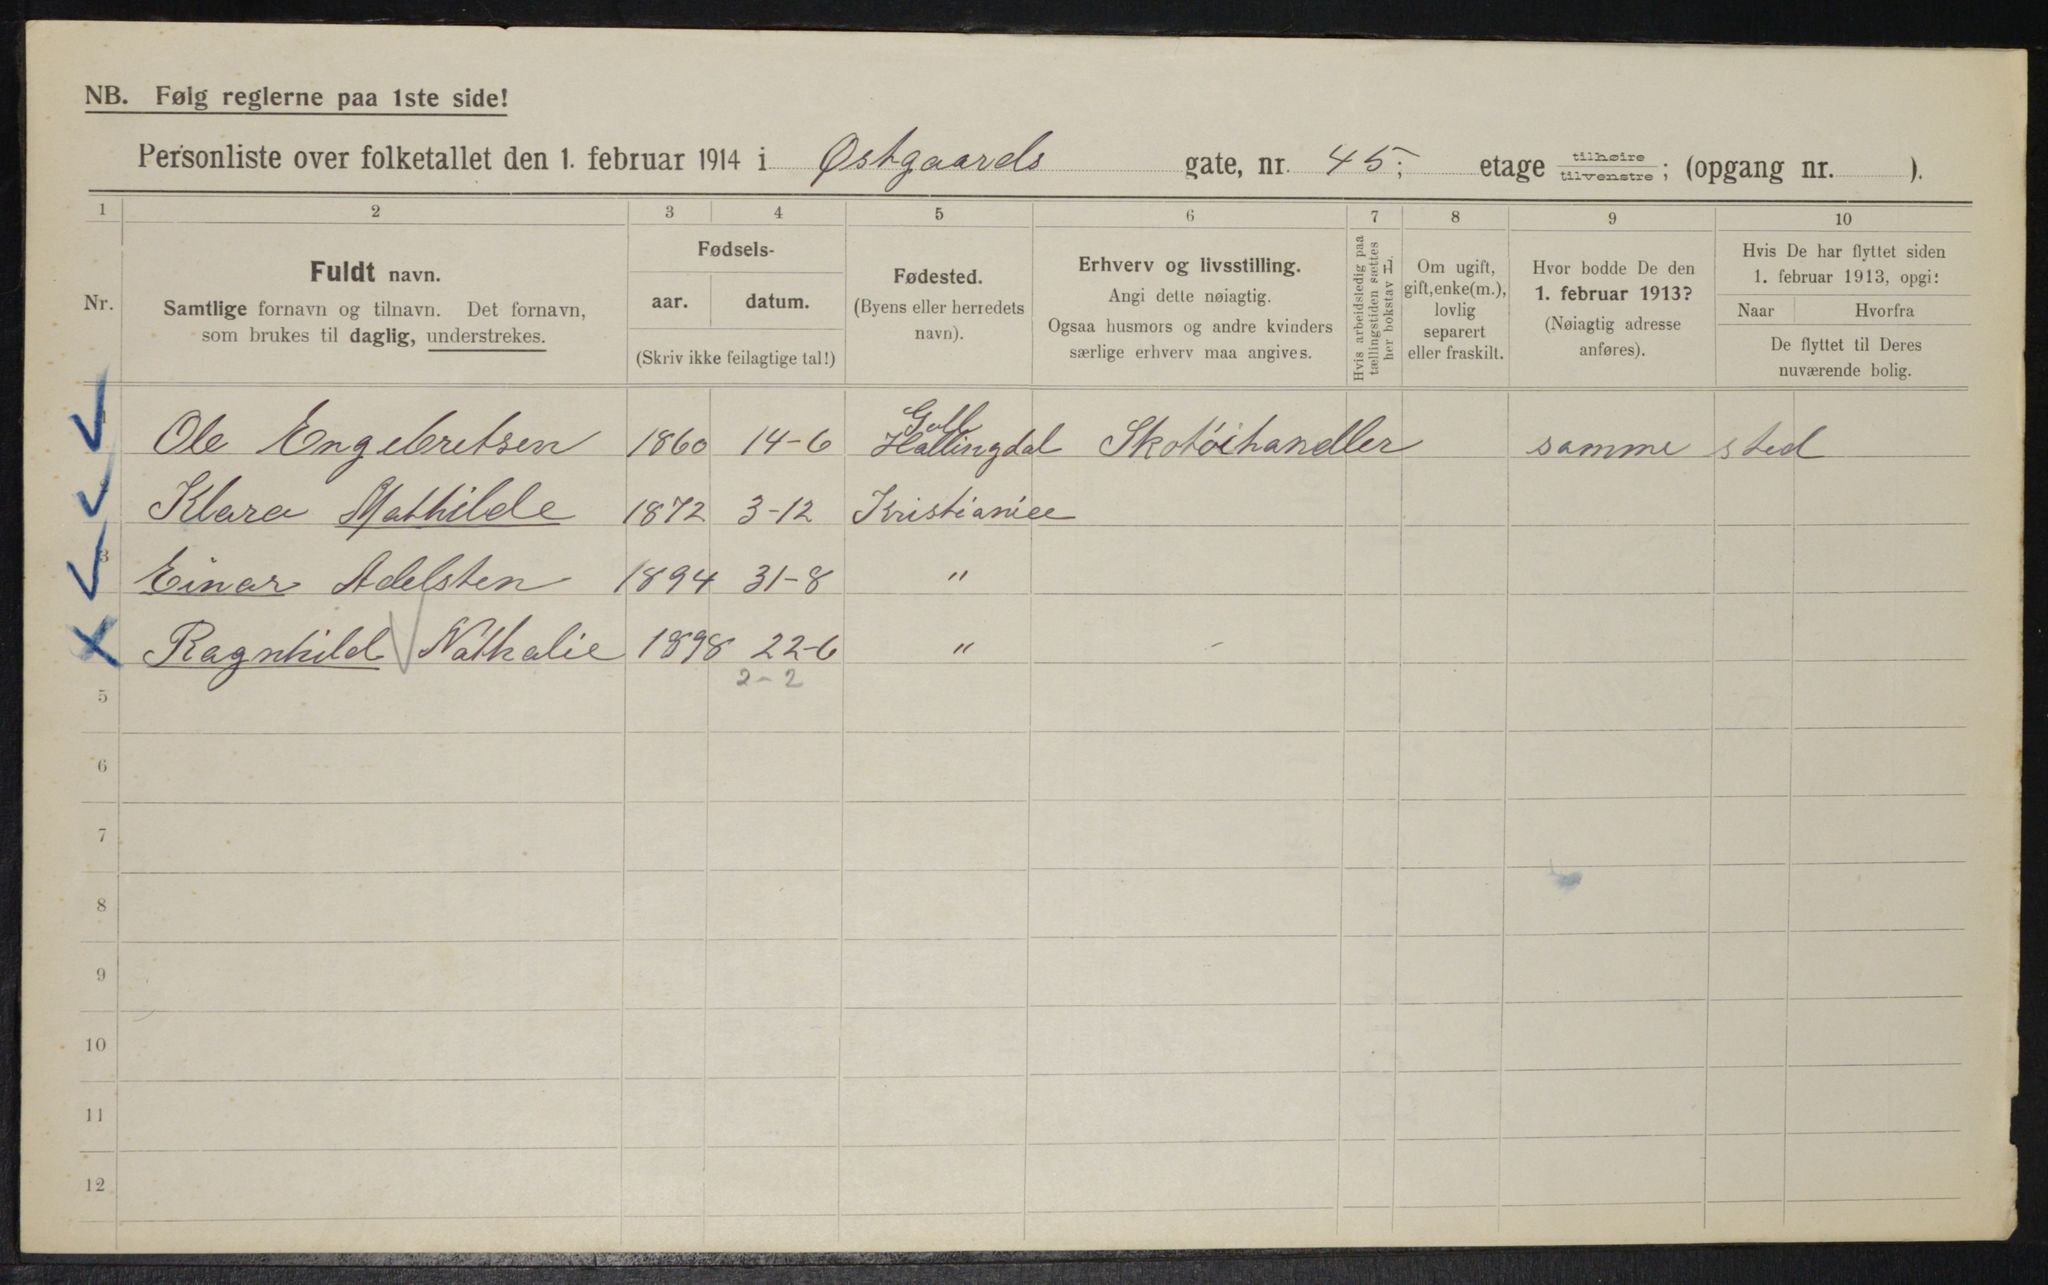 NB. Følg reglerne paa 1ste side!
Personliste over folketallet den 1. februar 1914 i Østgaards gate, nr. 45; etage tilhøire tilvenstre; (opgang nr. ).
1 2 3 4 5 6 7 8 9 10
Nr.
Fuldt navn.
Samtlige fornavn og tilnavn. Det fornavn,
som brukes til daglig, understrekes.
Fødsels-
aar. datum.
(Skriv ikke feilagtige tal!)
Fødested.
(Byens eller herredets
navn).
Erhverv og livsstilling.
Angi dette nøiagtig.
Ogsaa husmors og andre kvinders
særlige erhverv maa angives.
Hvis arbeidsledig paa
tællingstiden sættes
her bokstav L
Om ugift,
gift, enke(m.),
lovlig
separert
eller fraskilt.
Hvor bodde De den
1. februar 1913?
(Nøiagtig adresse
anføres).
Hvis De har flyttet siden
1. februar 1913, opgi:
Naar Hvorfra
De flyttet til Deres
nuværende bolig.
Ole Engebretsen 1860 14-6 Hallingdal Skotøihandler samme sted
Klara Mathilde 1872 3-12 Kristiania
3 Einar Adelsten 1894 31-8 "
Ragnhild Nathalie 1898 22-6 "
2-2
5
6
7
8
9
10
11
12